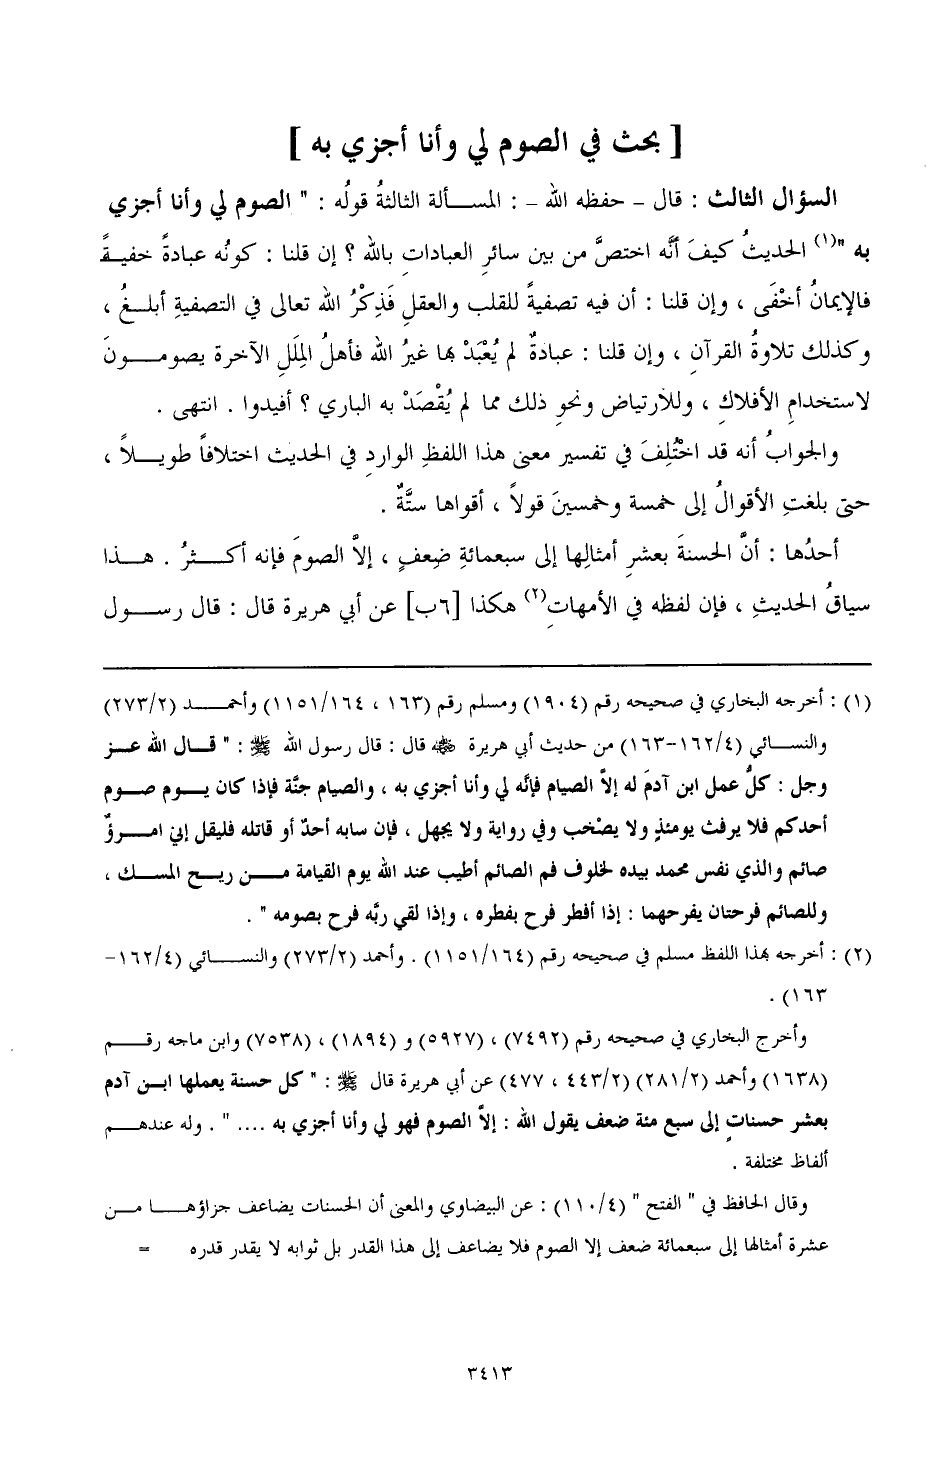 [ بحث في الصوم لي وأنا أجزي به ]
السؤال الثالث : قال – حفظه الله – : المسألة الثالثةُ قولُه : " الصوم لي وأنا أجزي
به "(١) الحديثُ كيفَ أنَّه اختصَّ من بين سائرِ العبادات بالله ؟ إن قلنا : كونُه عبادةً خفيةً
فالإيمانُ أخْفَى ، وإن قلنا : أن فيه تصفيةً للقلب والعقلِ فَذِكْرُ الله تعالى في التصفيةِ أبلغُ ،
وكذلك تلاوةُ القرآنِ ، وإن قلنا : عبادةٌ لم يُعْبَدْ بها غيرُ الله فأهلُ المِلَلِ الآخرة يصومونَ
لاستخدامِ الأفلاك ، وللارتياض ونحوِ ذلك مما لم يُقْصَدْ به الباري ؟ أفيدوا . انتهى .
والجوابُ أنه قد اختُلِفَ في تفسير معنى هذا اللفظِ الواردِ في الحديث اختلافاً طويلاً ،
حتى بلغتِ الأقوالُ إلى خمسة وخمسينَ قولاً ، أقواها ستَّةٌ .
أحدُها : أنَّ الحسنةَ بعشرِ أمثالِها إلى سبعمائةِ ضِعفٍ ، إلاَّ الصومَ فإنه أكثرُ . هذا
سياقُ الحديثِ ، فإن لفظه في الأمهاتِ(٢) هكذا [٦ب] عن أبي هريرة قال : قال رسول
(١) : أخرجه البخاري في صحيحه رقم (١٩٠٤) ومسلم رقم (١٦٣ ، ١١٥١/١٦٤) وأحمد (٢٧٣/٢)
والنسائي (١٦٢/٤-١٦٣) من حديث أبي هريرة رضي الله عنه قال : قال رسول الله ﷺ : " قال الله عز
وجل : كلُّ عمل ابن آدمَ له إلاَّ الصيام فإنَّه لي وأنا أجزي به ، والصيام جنَّة فإذا كان يوم صوم
أحدكم فلا يرفث يومئذٍ ولا يصْخب وفي رواية ولا يجهل ، فإن سابه أحدٌ أو قاتله فليقل إني امرؤٌ
صائم والذي نفس محمد بيده لخلوف فم الصائم أطيب عند الله يوم القيامة من ريح المسك ،
وللصائم فرحتان يفرحهما : إذا أفطر فرح بفطره ، وإذا لقي ربَّه فرح بصومه " .
(٢) : أخرجه بهذا اللفظ مسلم في صحيحه رقم (١١٥١/١٦٤) . وأحمد (٢٧٣/٢) والنسائي (١٦٢/٤-
١٦٣) .
وأخرج البخاري في صحيحه رقم (٧٤٩٢) ، (٥٩٢٧) و (١٨٩٤) ، (٧٥٣٨) وابن ماجه رقم
(١٦٣٨) وأحمد (٢٨١/٢) (٤٤٣/٢ ، ٤٧٧) عن أبي هريرة قال ﷺ : " كل حسنة يعملها ابن آدم
بعشر حسناتٍ إلى سبع مئة ضعف يقول الله : إلاَّ الصوم فهو لي وأنا أجزي به .... " . وله عندهم
ألفاظ مختلفة .
وقال الحافظ في " الفتح " (١١٠/٤) : عن البيضاوي والمعنى أن الحسنات يضاعف جزاؤها من
عشرة أمثالها إلى سبعمائة ضعف إلا الصوم فلا يضاعف إلى هذا القدر بل ثوابه لا يقدر قدره =
٣٤١٣